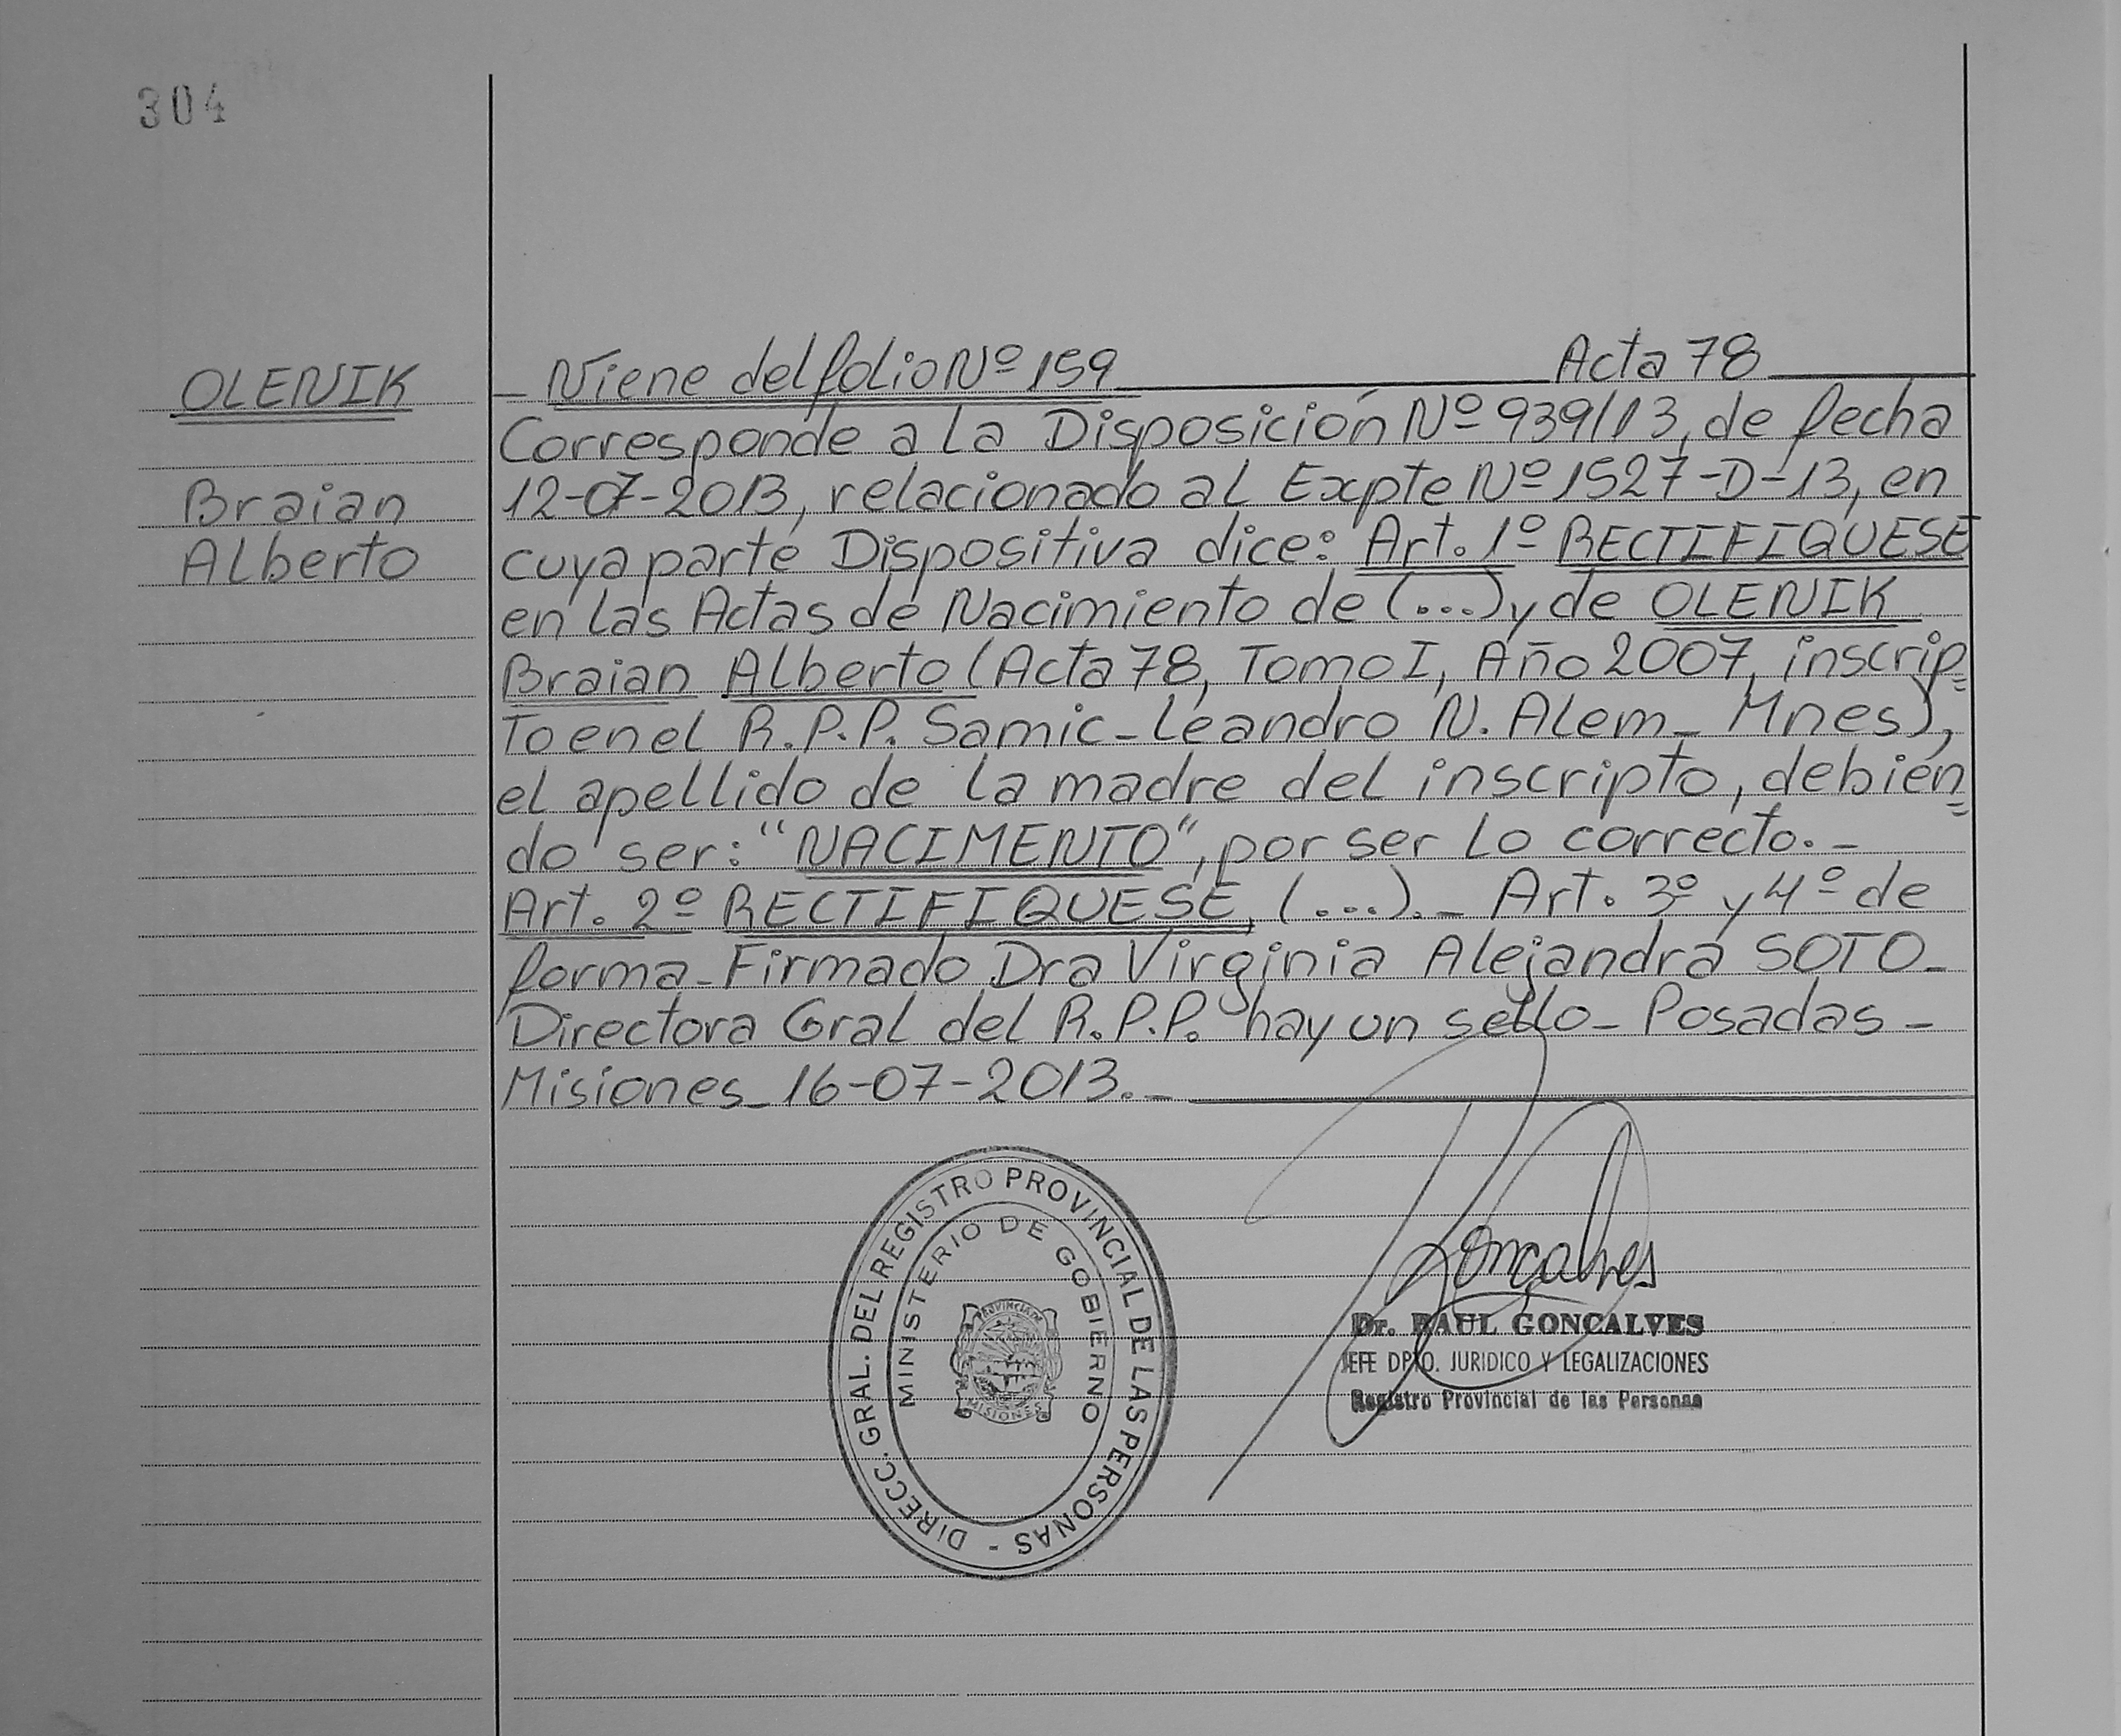 304
OLENIK
Braian
Alberto
_ Viene del folio Nº 159 ______ Acta 78 ______
Corresponde a la Disposición Nº 939/13, de fecha
12-07-2013, relacionado al Expte Nº 1527-D-13, en
cuya parte Dispositiva dice: Art. 1º RECTIFIQUESE
en las Actas de Nacimiento de (...) y de OLENIK
Braian Alberto (Acta 78, Tomo I, Año 2007, inscrip=
to en el R.P.P. Samic - Leandro N. Alem - Mnes),
el apellido de la madre del inscripto, debien=
do ser: "NACIMENTO", por ser lo correcto. -
Art. 2º RECTIFIQUESE, (...). - Art. 3º y 4º de
forma - Firmado Dra Virginia Alejandra SOTO -
Directora Gral del R.P.P. hay un sello - Posadas -
Misiones - 16-07-2013. - ______
DIRECC. GRAL. DEL REGISTRO PROVINCIAL DE LAS PERSONAS -
MINISTERIO DE GOBIERNO
PROVINCIA DE
MISIONES
Goncalves
Dr. RAUL GONCALVES
JEFE DPTO. JURIDICO Y LEGALIZACIONES
Registro Provincial de las Personas